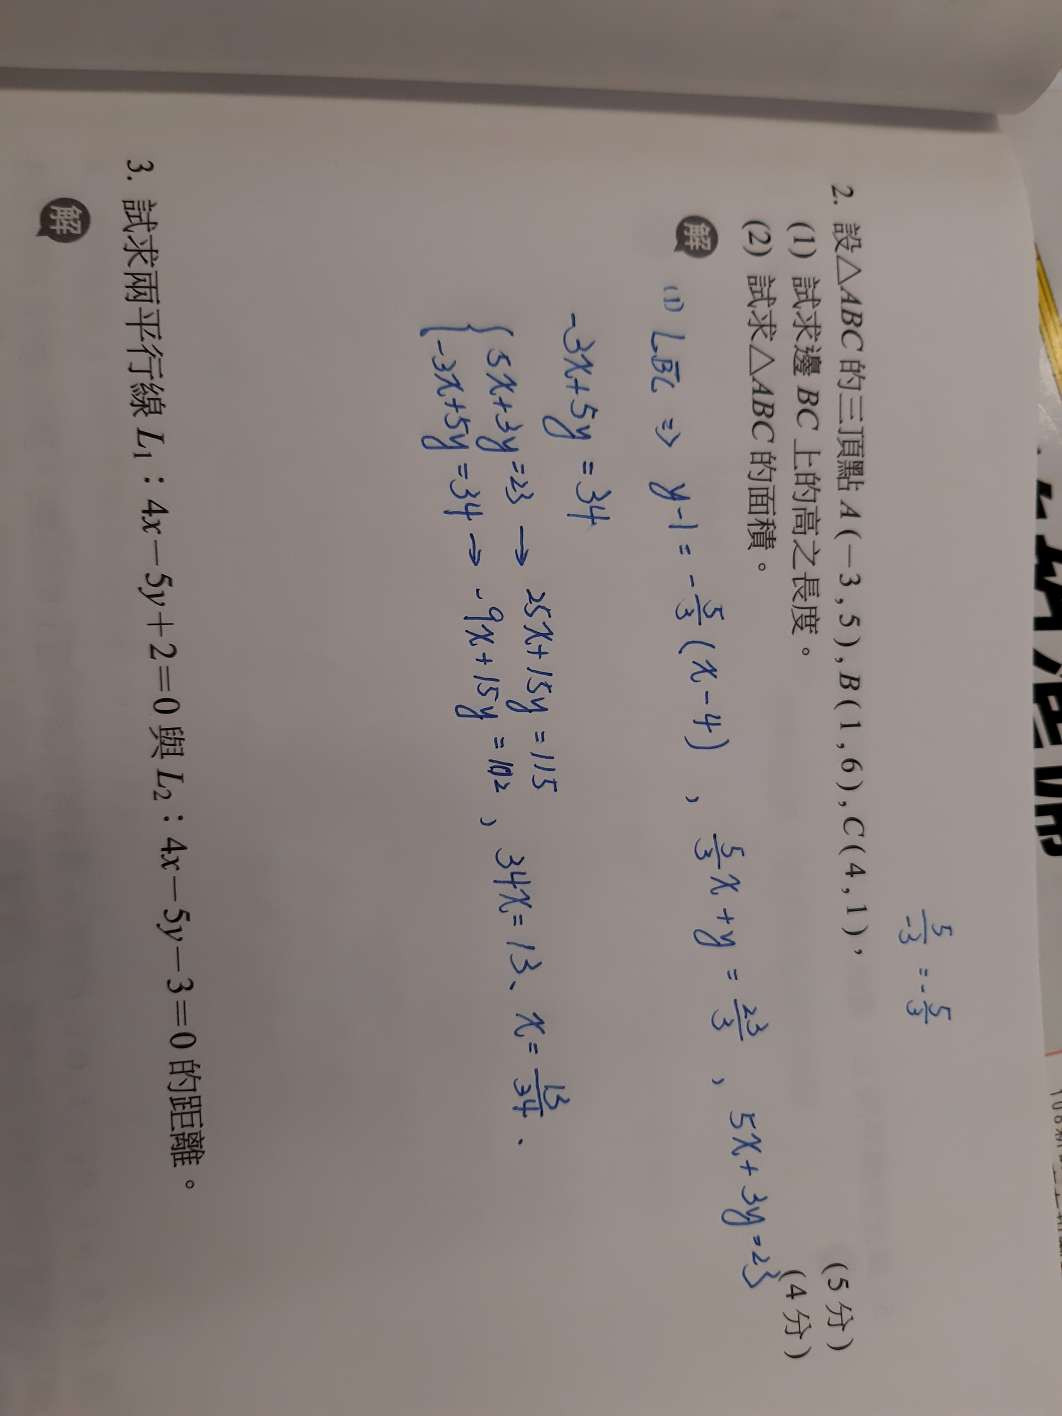 5/-3 = -5/3
2. 設△ABC的三頂點A(-3,5),B(1,6),C(4,1),
(1) 試求邊BC上的高之長度。 (5分)
(2) 試求△ABC的面積。 (4分)
解
(1) L_BC ⇒ y-1 = -5/3(x-4) 、 5/3x+y = 23/3 、 5x+3y=23
-3x+5y=34
{5x+3y=23 → 25x+15y=115
{-3x+5y=34 → -9x+15y=102 、 34x=13、x=13/34、
3. 試求兩平行線L₁：4x-5y+2=0與L₂：4x-5y-3=0的距離。
解